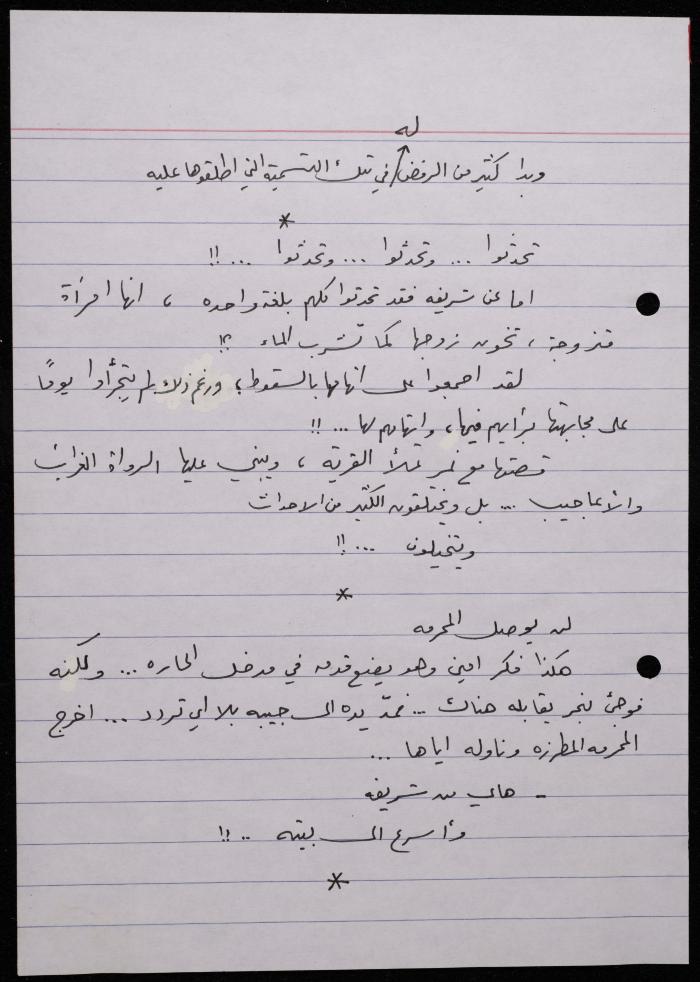 له
وبدا كثير من الرفض في تلك التسمية التي اطلقوها عليه
*
تحدثوا ... وتحدثوا ... وتحدثوا ... !!
اما عن شريفه فقد تحدثوا كلهم بلغة واحده ، انها امرأة
متزوجة ، تخون زوجها كما تشرب الماء !؟
لقد اجمعوا على اتهامها بالسقوط ؛ ورغم ذلك لم يتجرأوا يومًا
على مجابهتها برأيهم فيها ، واتهامهم لها ... !!
قصتها مع نمر تملأ القرية ، ويبني عليها الرواة الغرائب
والأعاجيب ... بل ويختلقون الكثير من الاحداث
ويتخيلون ... !!
*
لن يوصل المحرمه
هكذا فكر امين وهو يضع قدمه في مدخل الحاره ... ولكنه
فوجئ بنمر يقابله هناك ... فمدّ يده الى جيبه بلا اي تردد ... اخرج
المحرمه المطرزه وناوله اياها ...
- هاي من شريفه
وأسرع الى بيته .. !!
*